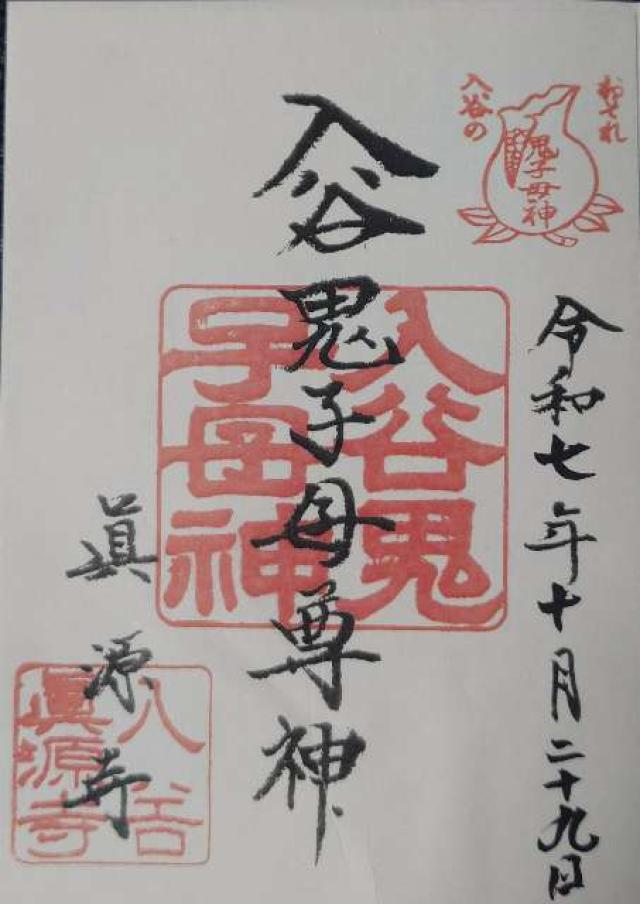 おそれ
入谷の
鬼子母神
令和七年十月二十九日
入谷鬼子母尊神
入谷鬼
子母神
眞源寺
入谷
眞源寺